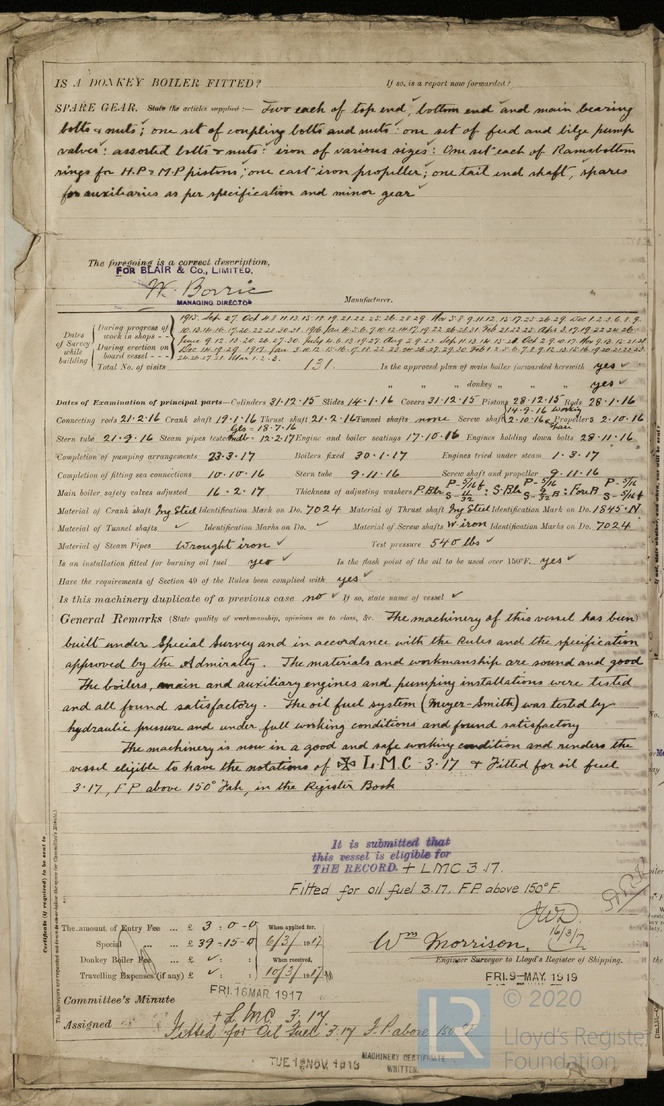 IS A DONKEY BOILER FITTED? If so, is a report now forwarded?
SPARE GEAR. State the articles supplied:— Two each of top end, bottom end and main bearing
bolts & nuts; one set of coupling bolts and nuts: one set of feed and bilge pump
valves: assorted bolts & nuts: iron of various sizes: One set each of Ramsbottom
rings for H.P & M.P pistons; one cast iron propeller; one tail end shaft, spares
for auxiliaries as per specification and minor gear
The foregoing is a correct description,
FOR BLAIR & Co., LIMITED.
W. Borrie
MANAGING DIRECTOR Manufacturer.
Dates of Survey while building
During progress of work in shops - -
During erection on board vessel - - -
Total No. of visits 131. Is the approved plan of main boiler forwarded herewith yes
" " " donkey " " yes
Dates of Examination of principal parts—Cylinders 31.12.15 Slides 14.1.16 Covers 31.12.15 Pistons 28.12.15 Rods 28.1.16
Connecting rods 21.2.16 Crank shaft 19.1.16 Thrust shaft 21.2.16 Tunnel shafts none Screw shaft 14.9.16 2.10.16 Propellers 2.10.16
Stern tube 21.9.16 Steam pipes tested 18.7.16 12.2.17 Engine and boiler seatings 17.10.16 Engines holding down bolts 28.11.16
Completion of pumping arrangements 23.3.17 Boilers fixed 30.1.17 Engines tried under steam 1.3.17
Completion of fitting sea connections 10.10.16 Stern tube 9.11.16 Screw shaft and propeller 9.11.16
Main boiler safety valves adjusted 16.2.17 Thickness of adjusting washers
Material of Crank shaft Ing Steel Identification Mark on Do. 7024 Material of Thrust shaft Ing Steel Identification Mark on Do. 1845.N
Material of Tunnel shafts ✓ Identification Marks on Do. ✓ Material of Screw shafts W.iron Identification Marks on Do. 7024
Material of Steam Pipes Wrought iron ✓ Test pressure 540 lbs ✓
Is an installation fitted for burning oil fuel yes ✓ Is the flash point of the oil to be used over 150°F. yes ✓
Have the requirements of Section 49 of the Rules been complied with yes ✓
Is this machinery duplicate of a previous case no ✓ If so, state name of vessel ✓
General Remarks (State quality of workmanship, opinions as to class, &c. The machinery of this vessel has been
built under Special Survey and in accordance with the Rules and the specification
approved by the Admiralty. The materials and workmanship are sound and good
The boilers, main and auxiliary engines and pumping installations were tested
and all found satisfactory. The oil fuel system (Meyer-Smith) was tested by
hydraulic pressure and under full working conditions and found satisfactory
The machinery is now in a good and safe working condition and renders the
vessel eligible to have the notations of ✠ L.M.C - 3.17 & Fitted for oil fuel
3.17, F.P above 150° Fah, in the Register Book
It is submitted that
this vessel is eligible for
THE RECORD. + LMC 3.17.
Fitted for oil fuel 3.17. F.P. above 150°F.
JWD.
16/3/17
The amount of Entry Fee .. £ 3 : 0 - 0 When applied for,
Special ... ... £ 39 - 15 - 0 6/3/1917
Donkey Boiler Fee ... £ ✓ : : When received,
Travelling Expenses (if any) £ ✓ : : 10/3/1917
Wm Morrison.
Engineer Surveyor to Lloyd's Register of Shipping.
Committee's Minute FRI. 16 MAR 1917 FRI. 9-MAY. 1919
Assigned + L.M.C. 3.17
Fitted for Oil Fuel 3.17 F.P. above 150°F
TUE 18 NOV. 1919
MACHINERY CERTIFICATE
WRITTEN.
© 2020
LR
Lloyd's Register
Foundation